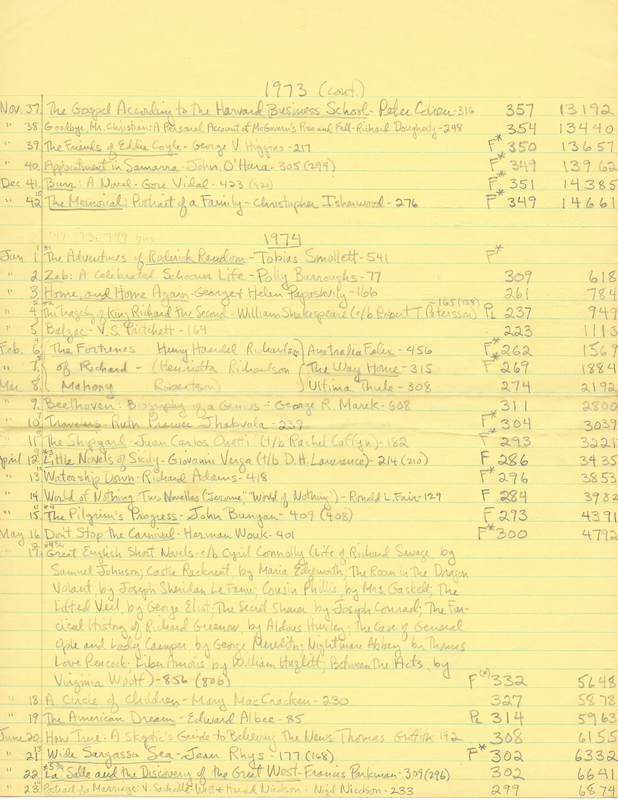 1973 (cont.)
Nov. 37 The Gospel According to the Harvard Business School - Peter Cohen - 316 357 13192
" 38 Goodbye, Mr. Christian: A Personal Account of McGovern's Rise and Fall - Richard Dougherty - 248 354 13440
" 39 The Friends of Eddie Coyle - George V. Higgins - 217 F* 350 13657
" 40 Appointment in Samarra - John O'Hara - 305 (299) F* 349 13962
Dec 41 Burr: A Novel - Gore Vidal - 423 F* 351 14385
" 42 The Memorial: Portrait of a Family - Christopher Isherwood - 276 F* 349 14661
1974
Jan 1 The Adventures of Roderick Random - Tobias Smollett - 541 F*
" 2 Zeb: A Celebrated Schooner Life - Polly Burroughs - 77 309 618
" 3 Home, and Home Again - George & Helen Papashvily - 166 261 784
" 4 The Tragedy of King Richard the Second - William Shakespeare (e/b Robert T. Petersson) - 165 (128) PL 237 949
" 5 Balzac - V. S. Pritchett - 164 223 1113
Feb. 6 The Fortunes Henry Handel Richardson Australia Felix - 456 F* 262 1569
" 7 of Richard - (Henrietta Richardson The Way Home - 315 F* 269 1884
Mar. 8 Mahony Robertson) Ultima Thule - 308 274 2192
" 9 Beethoven: Biography of a Genius - George R. Marek - 608 311 2800
" 10 Travelers - Ruth Prawer Jhabvala - 239 F* 304 3039
" 11 The Shipyard - Juan Carlos Onetti (t/b Rachel Caffyn) - 182 F* 293 3221
April 12 Little Novels of Sicily - Giovanni Verga (t/b D. H. Lawrence) - 214 (210) F 286 3435
" 13 Watership Down - Richard Adams - 418 F* 296 3853
" 14 World of Nothing: Two Novellas ("Jerome" "World of Nothing") - Ronald L. Fair - 129 F 284 3982
" 15 The Pilgrim's Progress - John Bunyan - 409 (408) F 293 4391
May 16 Don't Stop the Carnival - Herman Wouk - 401 F* 300 4792
" 17 Great English Short Novels - e/b Cyril Connolly (Life of Richard Savage, by
Samuel Johnson; Castle Rackrent, by Maria Edgeworth; The Room in the Dragon
Volant, by Joseph Sheridan Le Fanu; Cousin Phillis, by Mrs. Gaskell; The
Lifted Veil, by George Eliot; The Secret Sharer by Joseph Conrad; The Far-
cical History of Richard Greenow, by Aldous Huxley; The Case of General
Ople and Lady Camper, by George Meredith; Nightmare Abbey, by Thomas
Love Peacock; Liber Amoris by William Hazlitt; Between The Acts, by
Virginia Woolf) - 856 (806) F(*) 332 5648
" 18 A Circle of Children - Mary MacCracken - 230 327 5878
" 19 The American Dream - Edward Albee - 85 PL 314 5963
June 20 How True: A Skeptic's Guide to Believing the News - Thomas Griffith 192 308 6155
" 21 Wide Sargasso Sea - Jean Rhys - 177 (168) F* 302 6332
" 22 La Salle and the Discovery of the Great West - Francis Parkman - 309 (296) 302 6641
" 23 Portrait of a Marriage: V. Sackville-West & Harold Nicolson - Nigel Nicolson - 233 299 6874